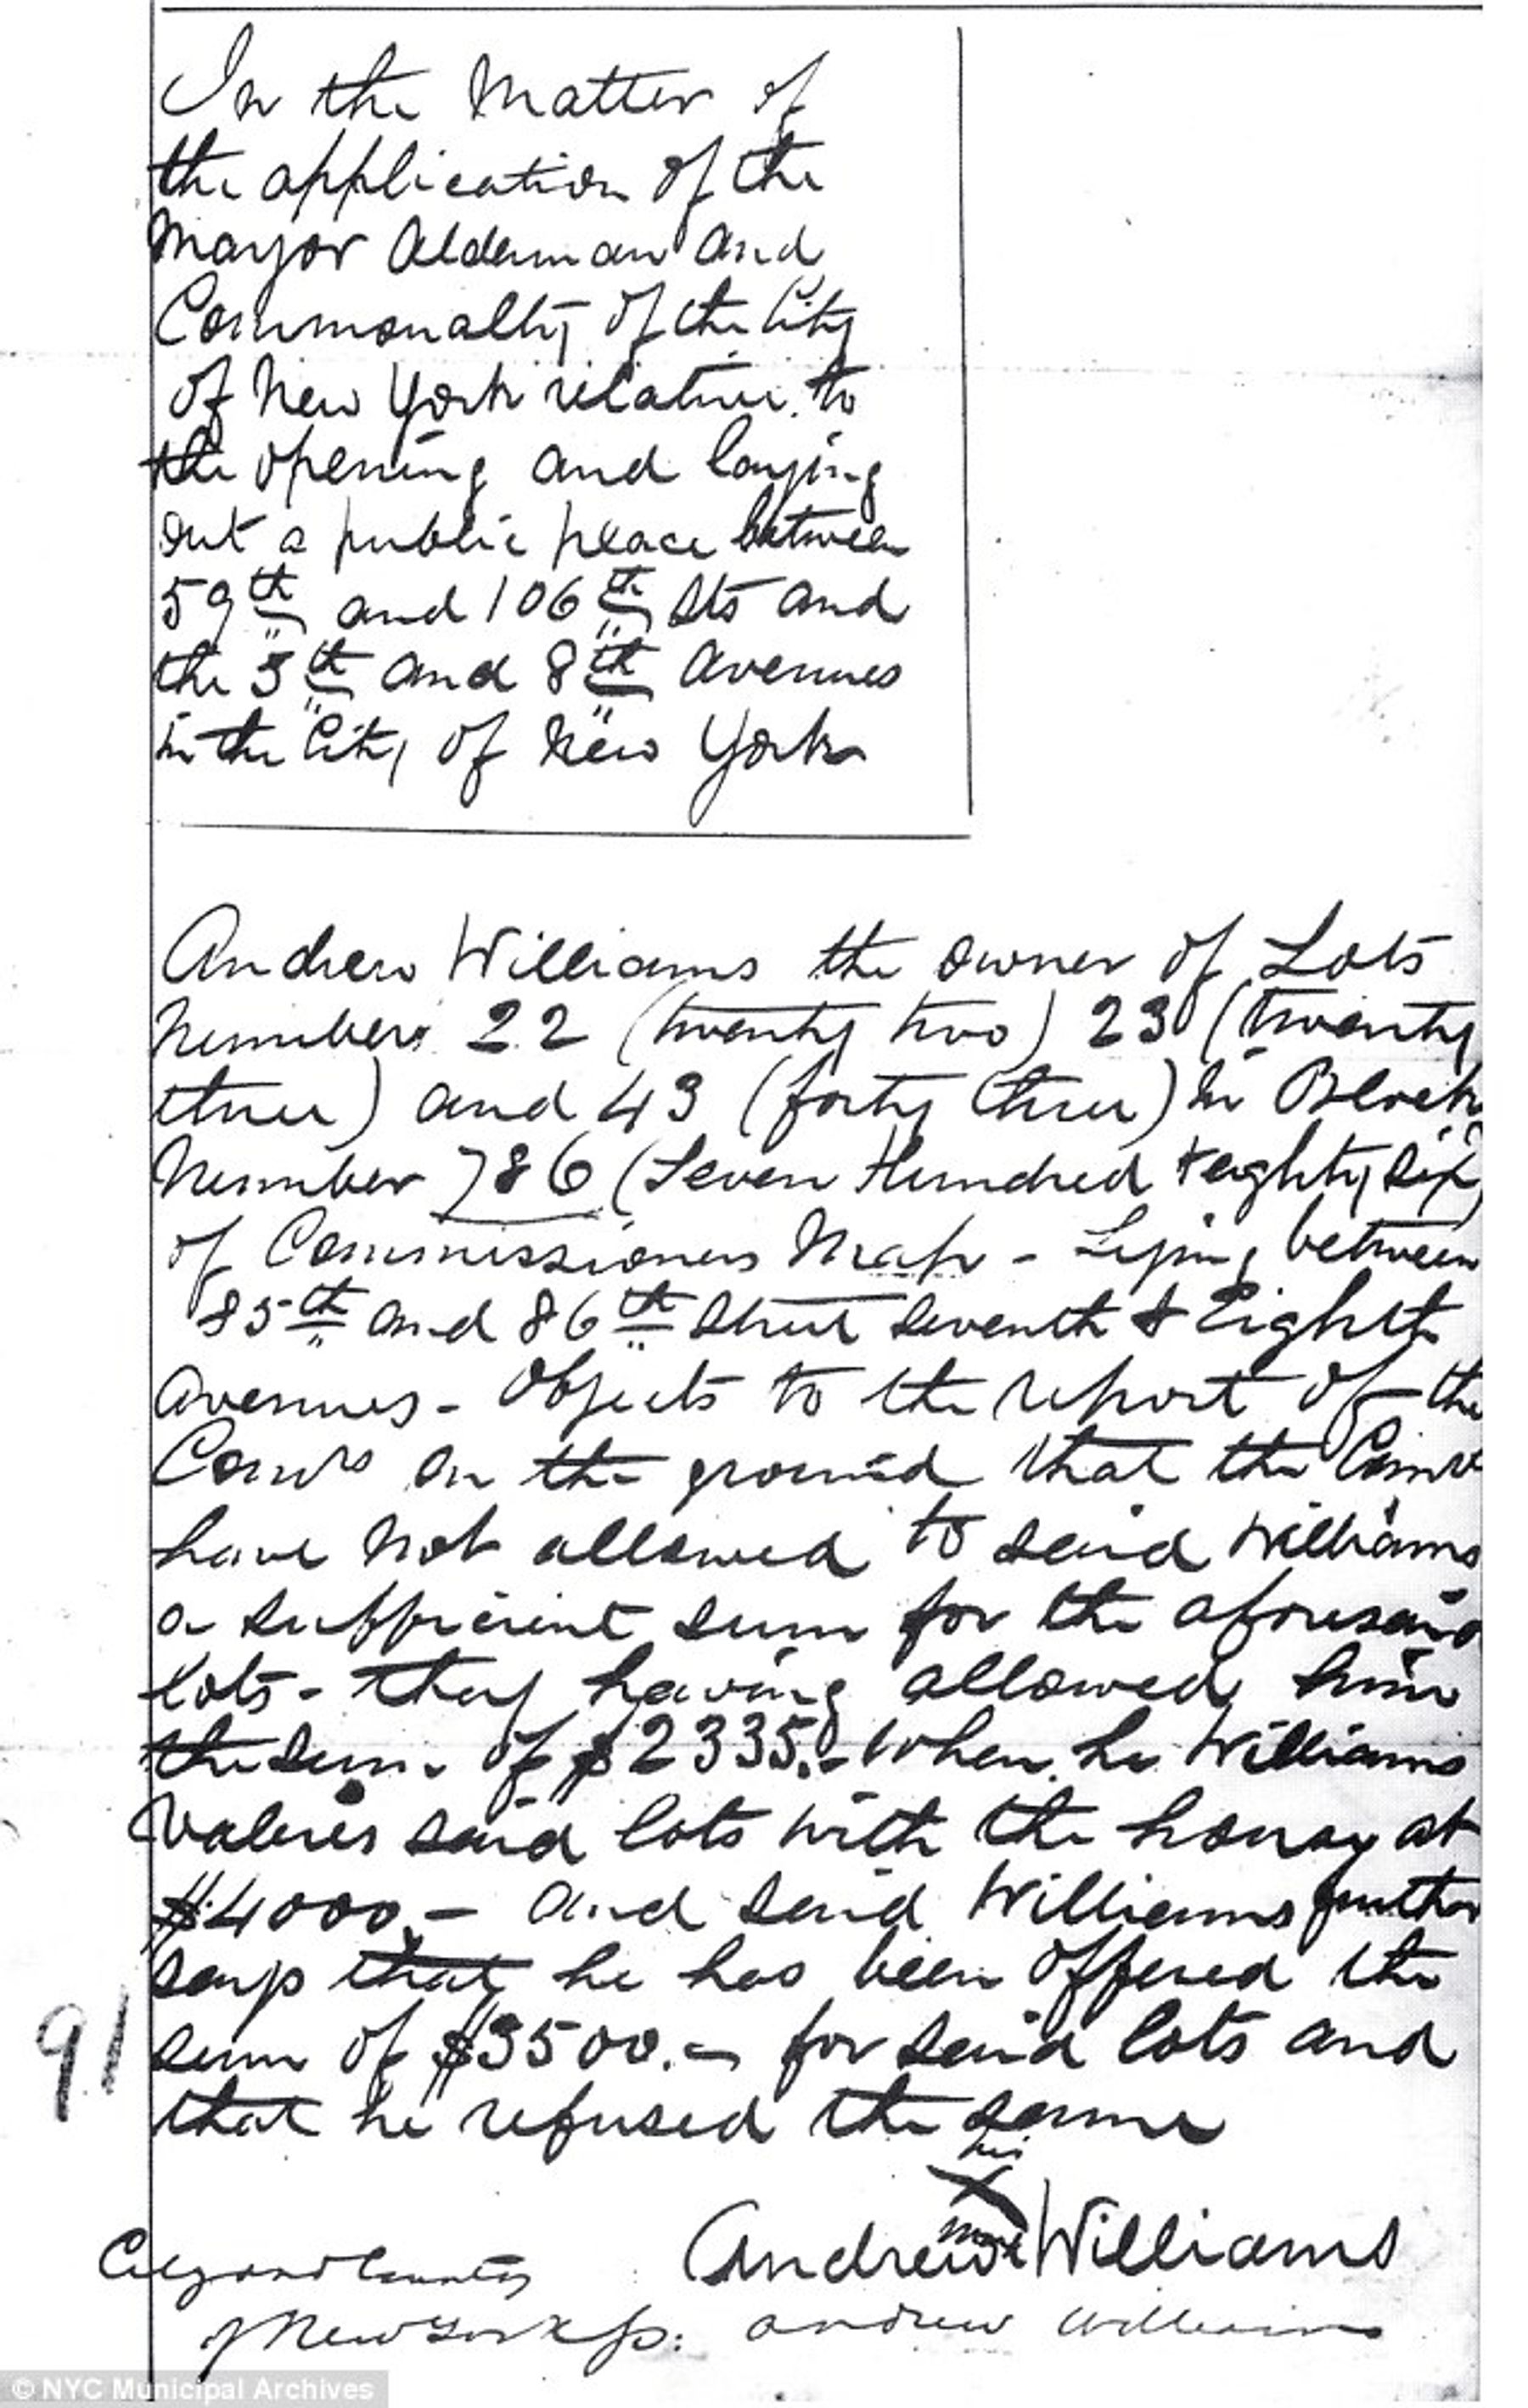 In the Matter of
the application of the
Mayor Alderman and
Commonalty of the City
of New York relative to
the opening and laying
out a public place between
59th and 106th Sts and
the 5th and 8th Avenues
in the City of New York
Andrew Williams the owner of Lots
Numbers 22 (twenty two) 23 (twenty
three) and 43 (forty three) in Block
Number 786 (Seven Hundred + eighty six)
of Commissioners Map - Lying between
85th and 86th Street Seventh & Eighth
Avenues - Objects to the report of the
Comrs on the ground that the Comrs
have not allowed to said Williams
a sufficient sum for the aforesaid
lots - they having allowed him
the sum of $2335.- When he Williams
values said lots with the house at
$4000.- and said Williams further
says that he has been offered the
sum of $3500.- for said lots and
91
that he refused the same
his
X
mark
Andrew Williams
City and County
of New York ss: Andrew Williams
© NYC Municipal Archives